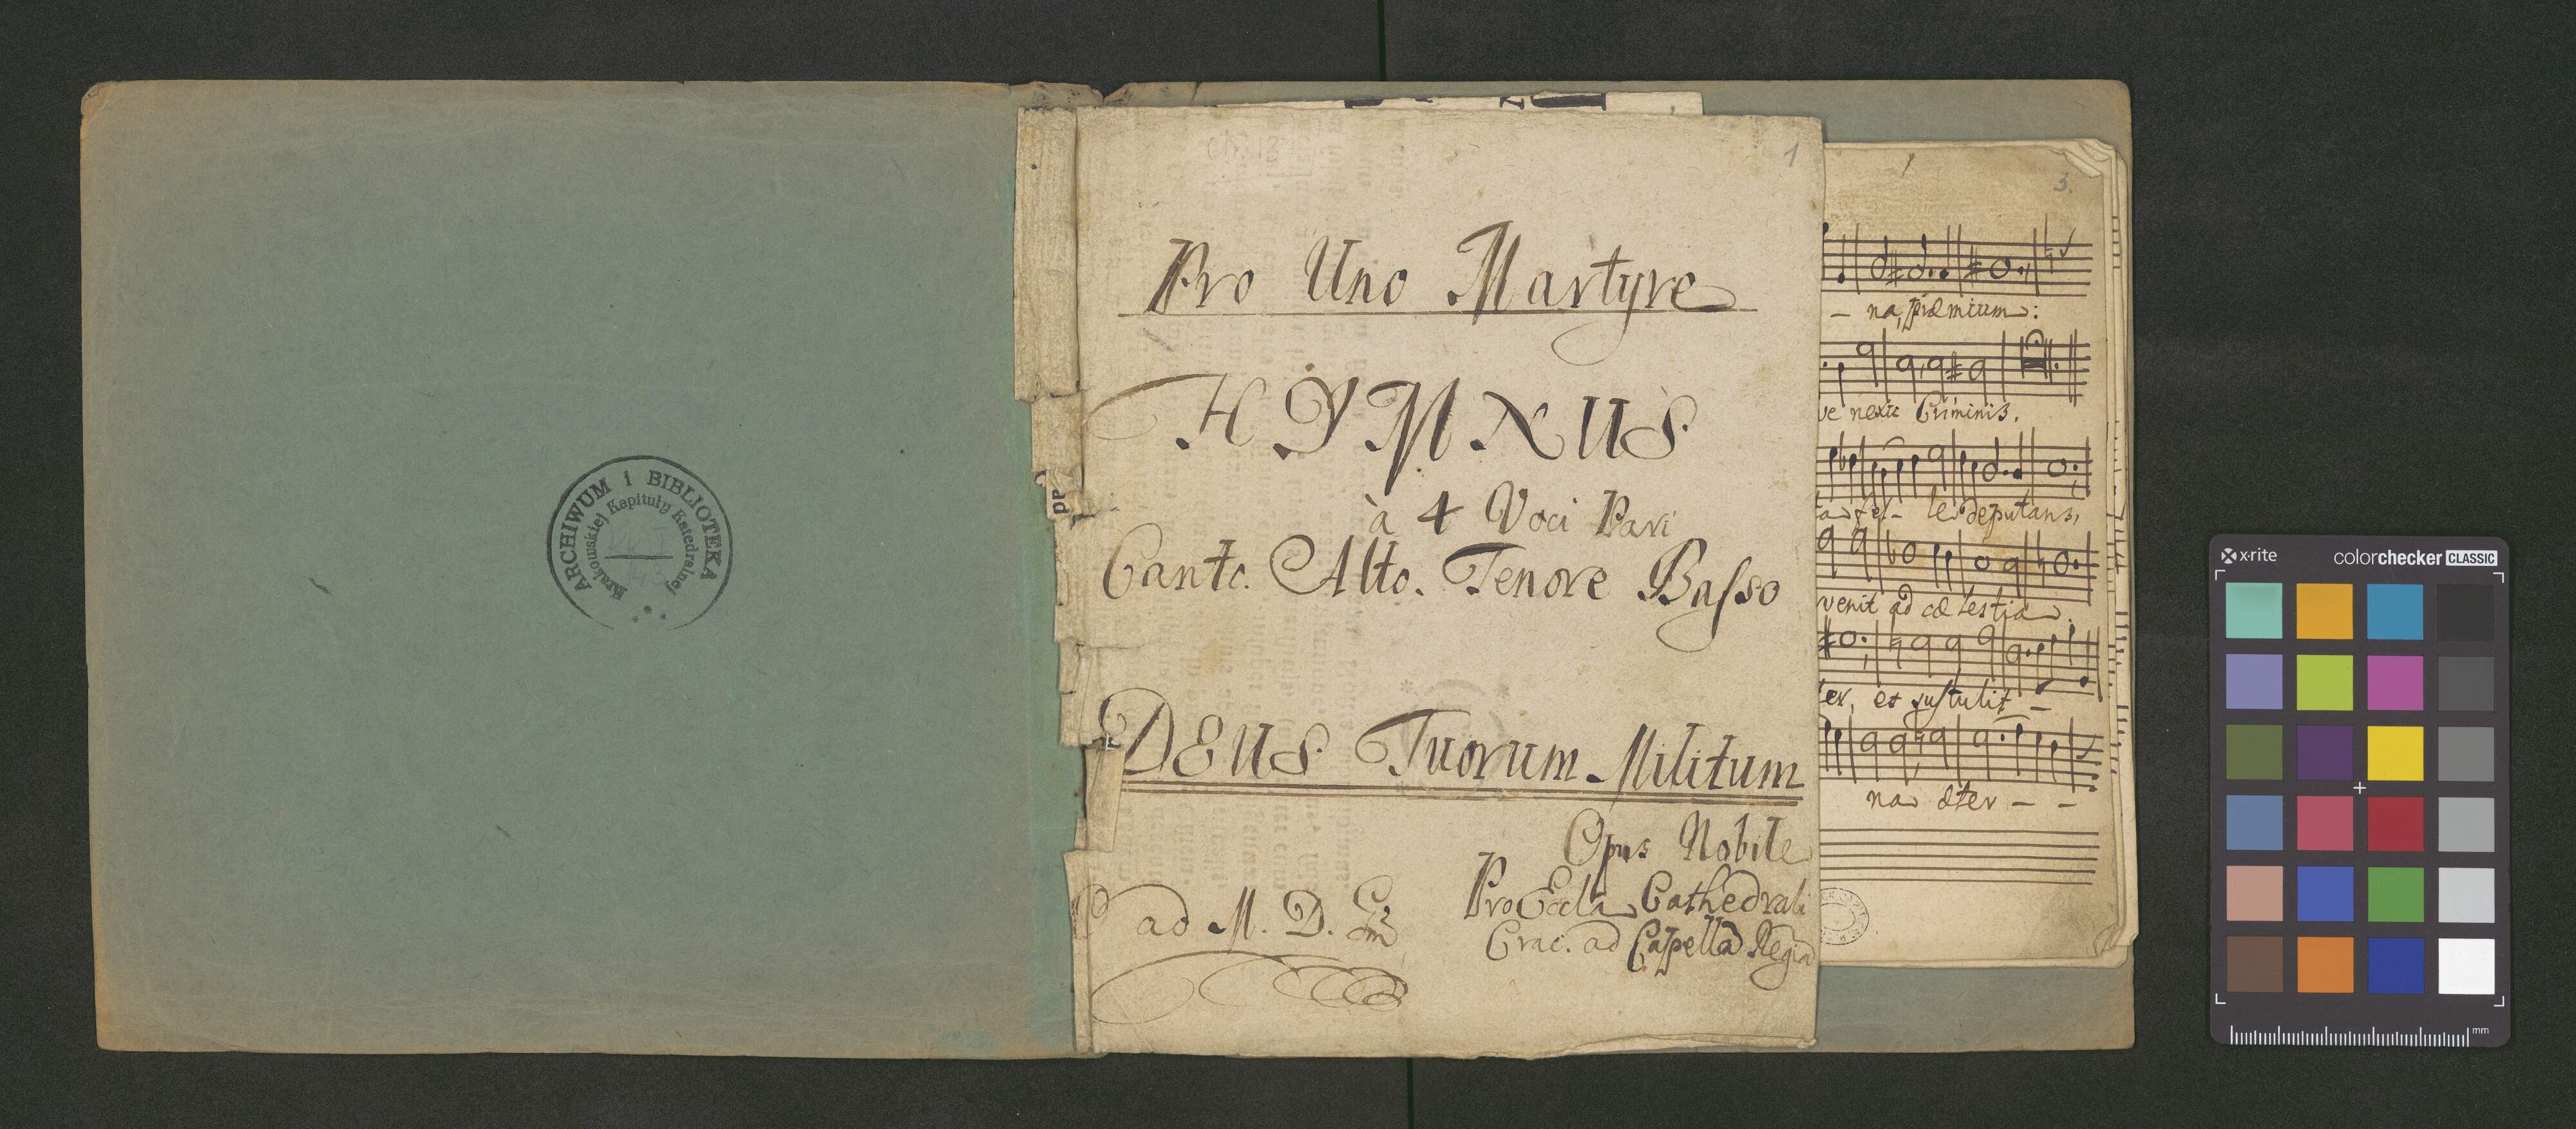 ARCHIWUM i BIBLIOTEKA
Krakowskiej Kapituły Katedralnej
1
Pro Uno Martyre
HYMNUS
à 4 Voci Pari
Canto. Alto. Tenore Basso
DEUS Tuorum Militum
Opus Nobile
Pro Eccla Cathedrali
Crac. ad Capella Regia
ad M. D. G.
1
3.
- na, præmium:
ve nexu Criminis.
le deputans,
venit ad cælestia.
ter, et sustulit -
na æter - -
x-rite colorchecker CLASSIC
mm